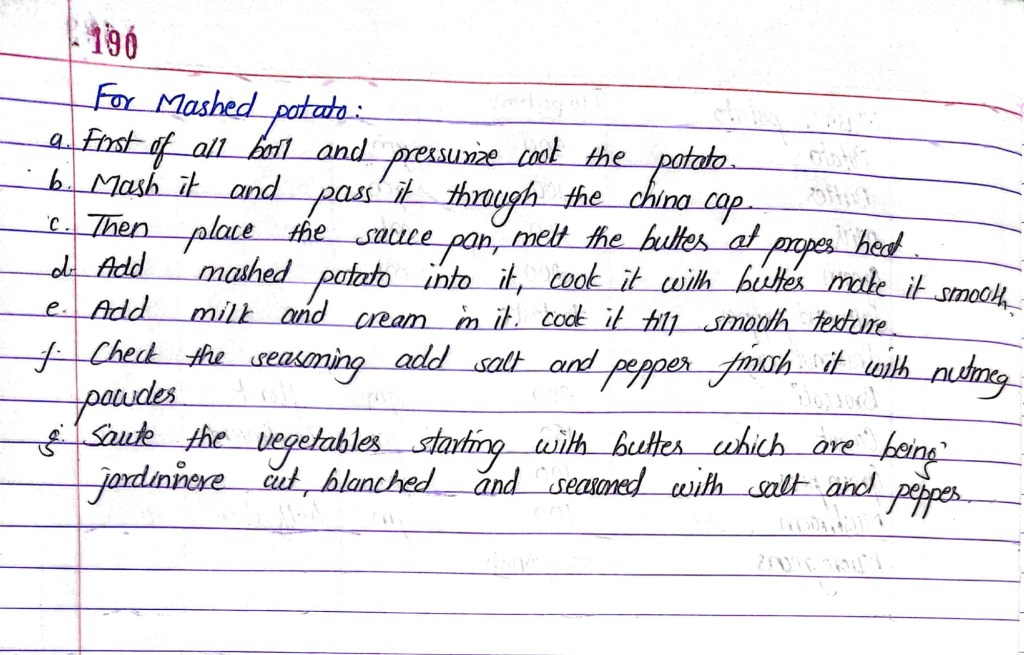 190
For Mashed potato:
a. First of all boil and pressurize cook the potato.
b. Mash it and pass it through the china cap.
c. Then place the sauce pan, melt the butter at proper heat.
d. Add mashed potato into it, cook it with butter make it smooth.
e. Add milk and cream in it. cook it till smooth texture.
f. Check the seasoning add salt and pepper finish it with nutmeg
powder
g. Saute the vegetables starting with butter which are being
jardinnere cut, blanched and seasoned with salt and pepper.